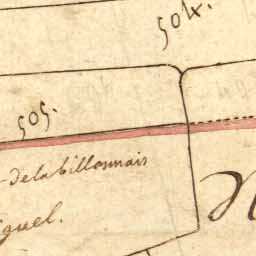 504.
505.
-De la billonnais
iguel.